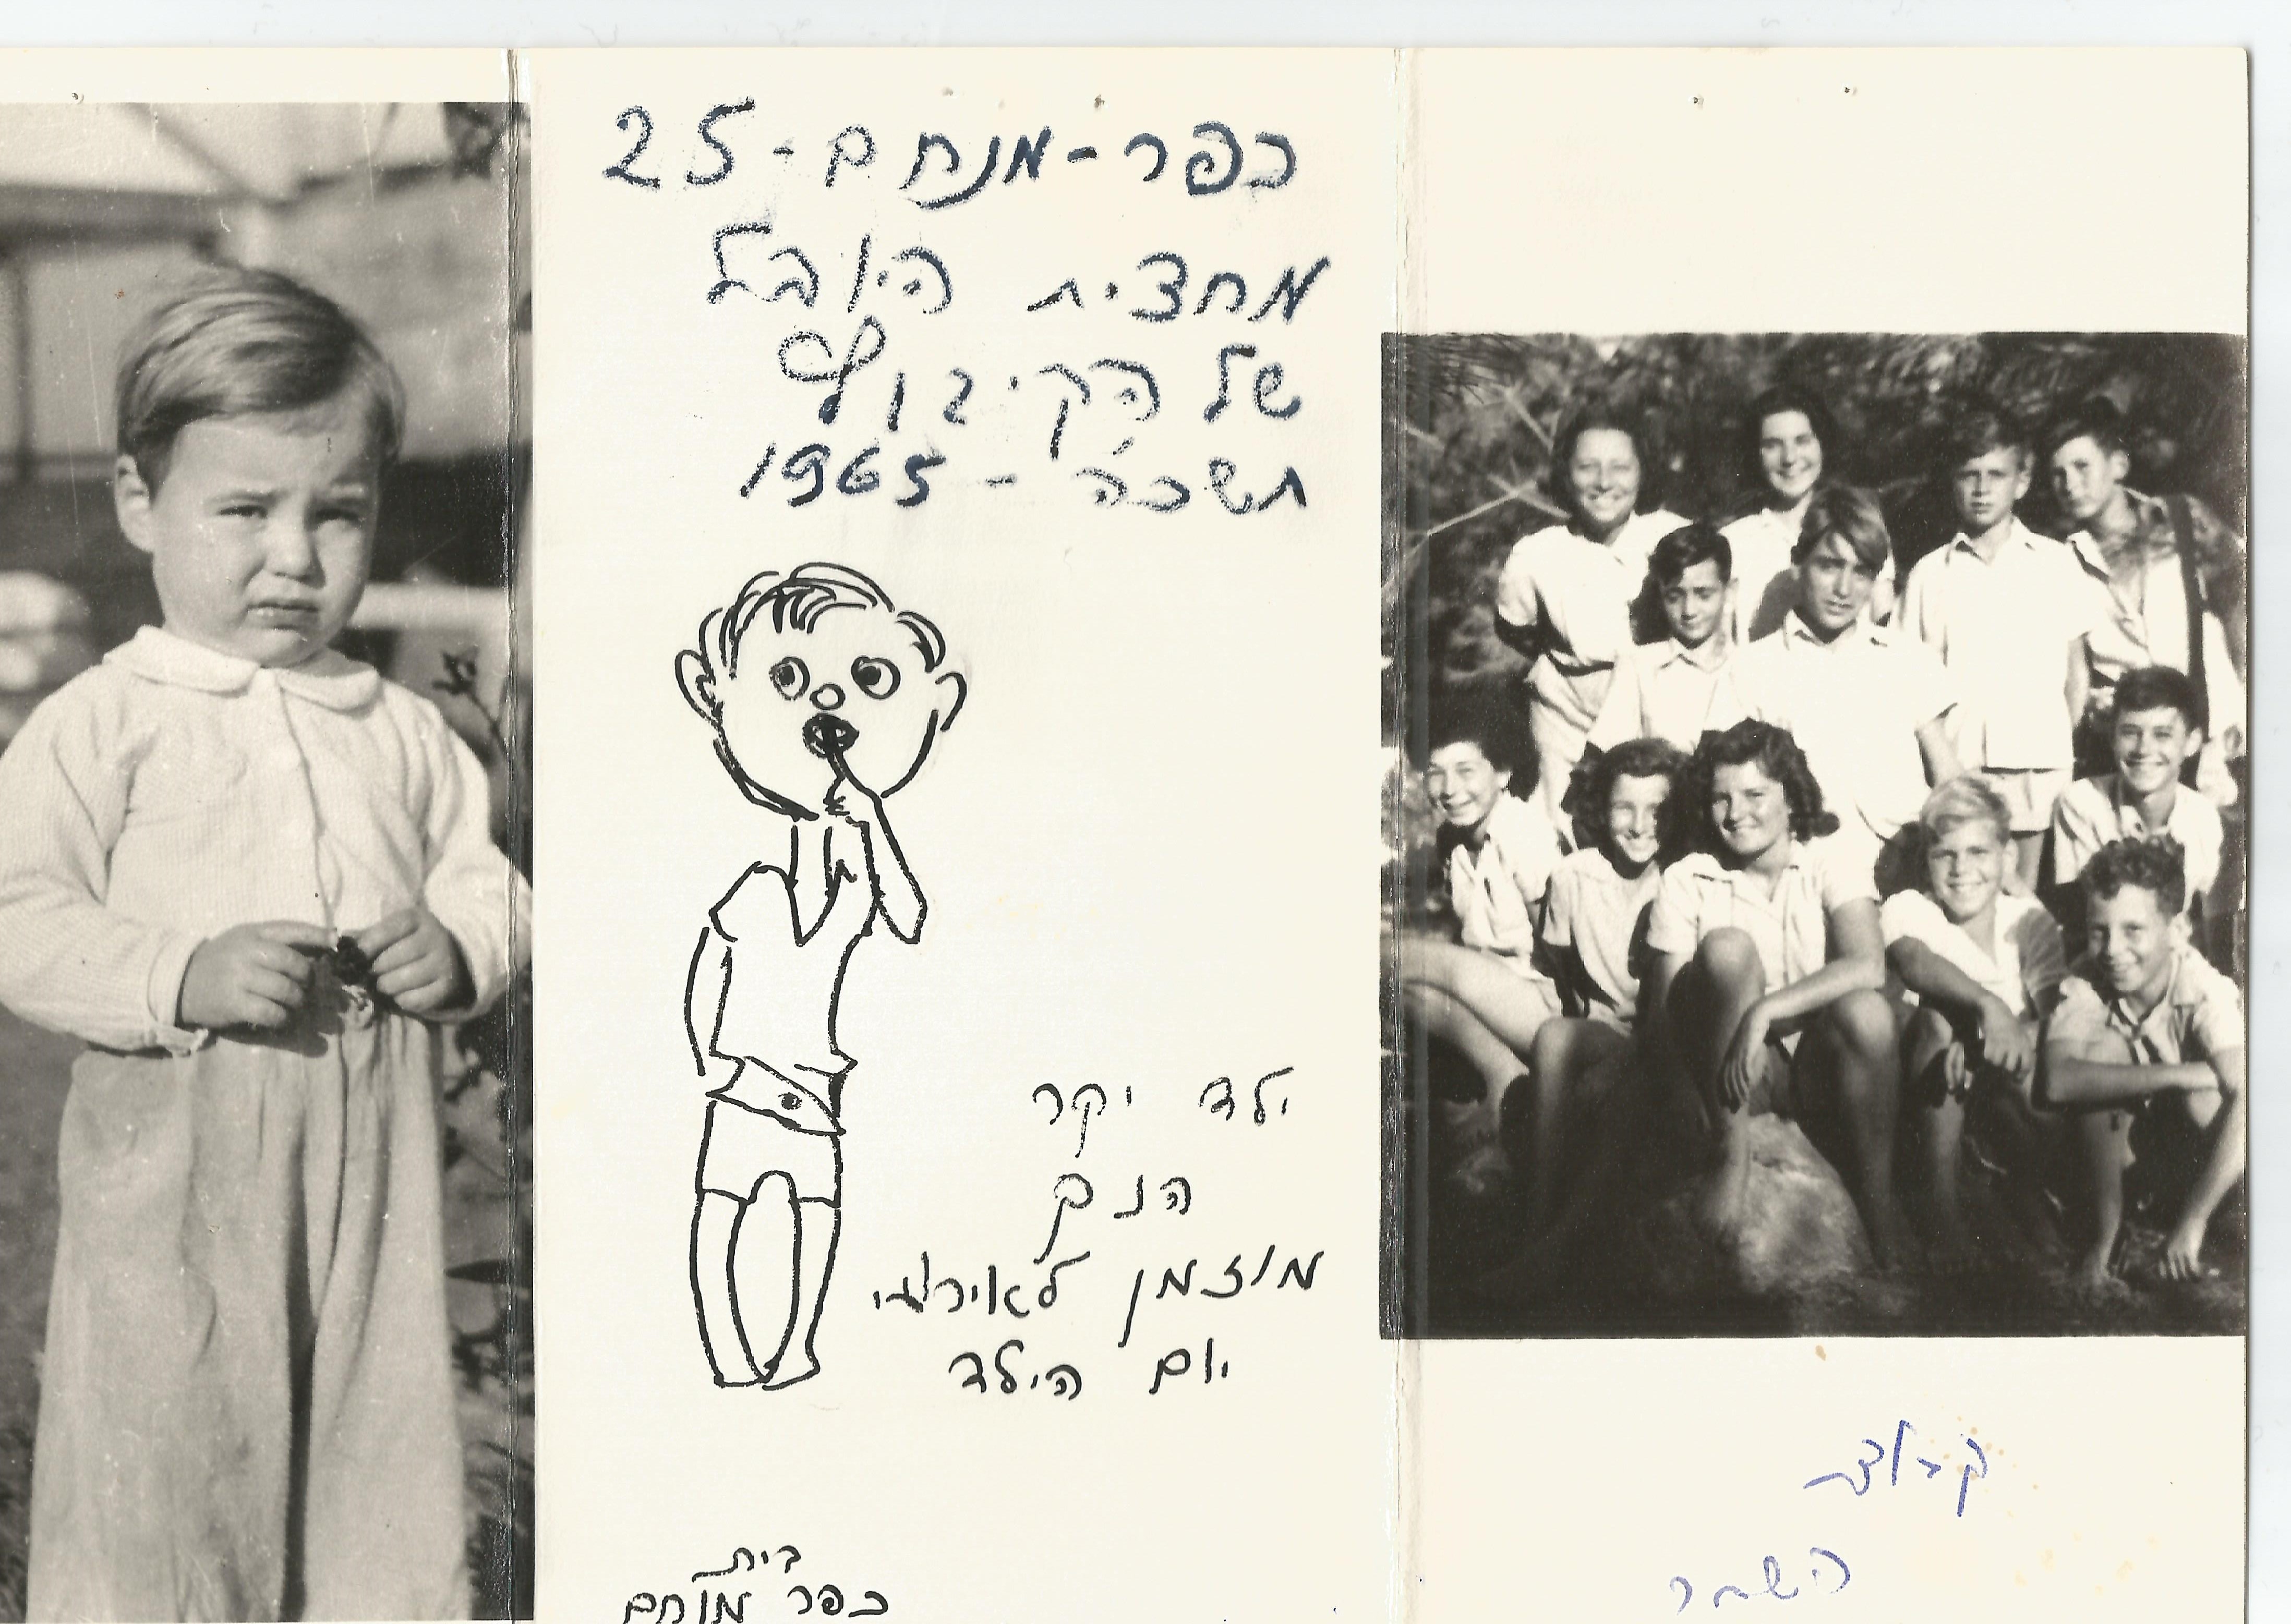 כפר-מנחם-25
מחצית היובל
של הקיבוץ
תשכ"ה - 1965
ילד יקר
הנך
מוזמן לאירועי
יום הילד
בית
כפר מנחם
קבוצת
השחר